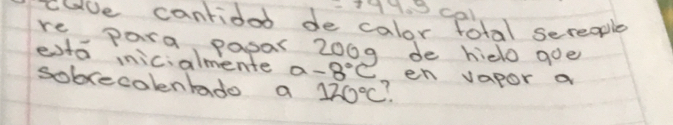 744.9 cal
Que cantidad de calor total sereqie
re para pasar 200g de hielo que
está inicialmente a -8°C, en vapor a
sobrecalentado a 120°C?